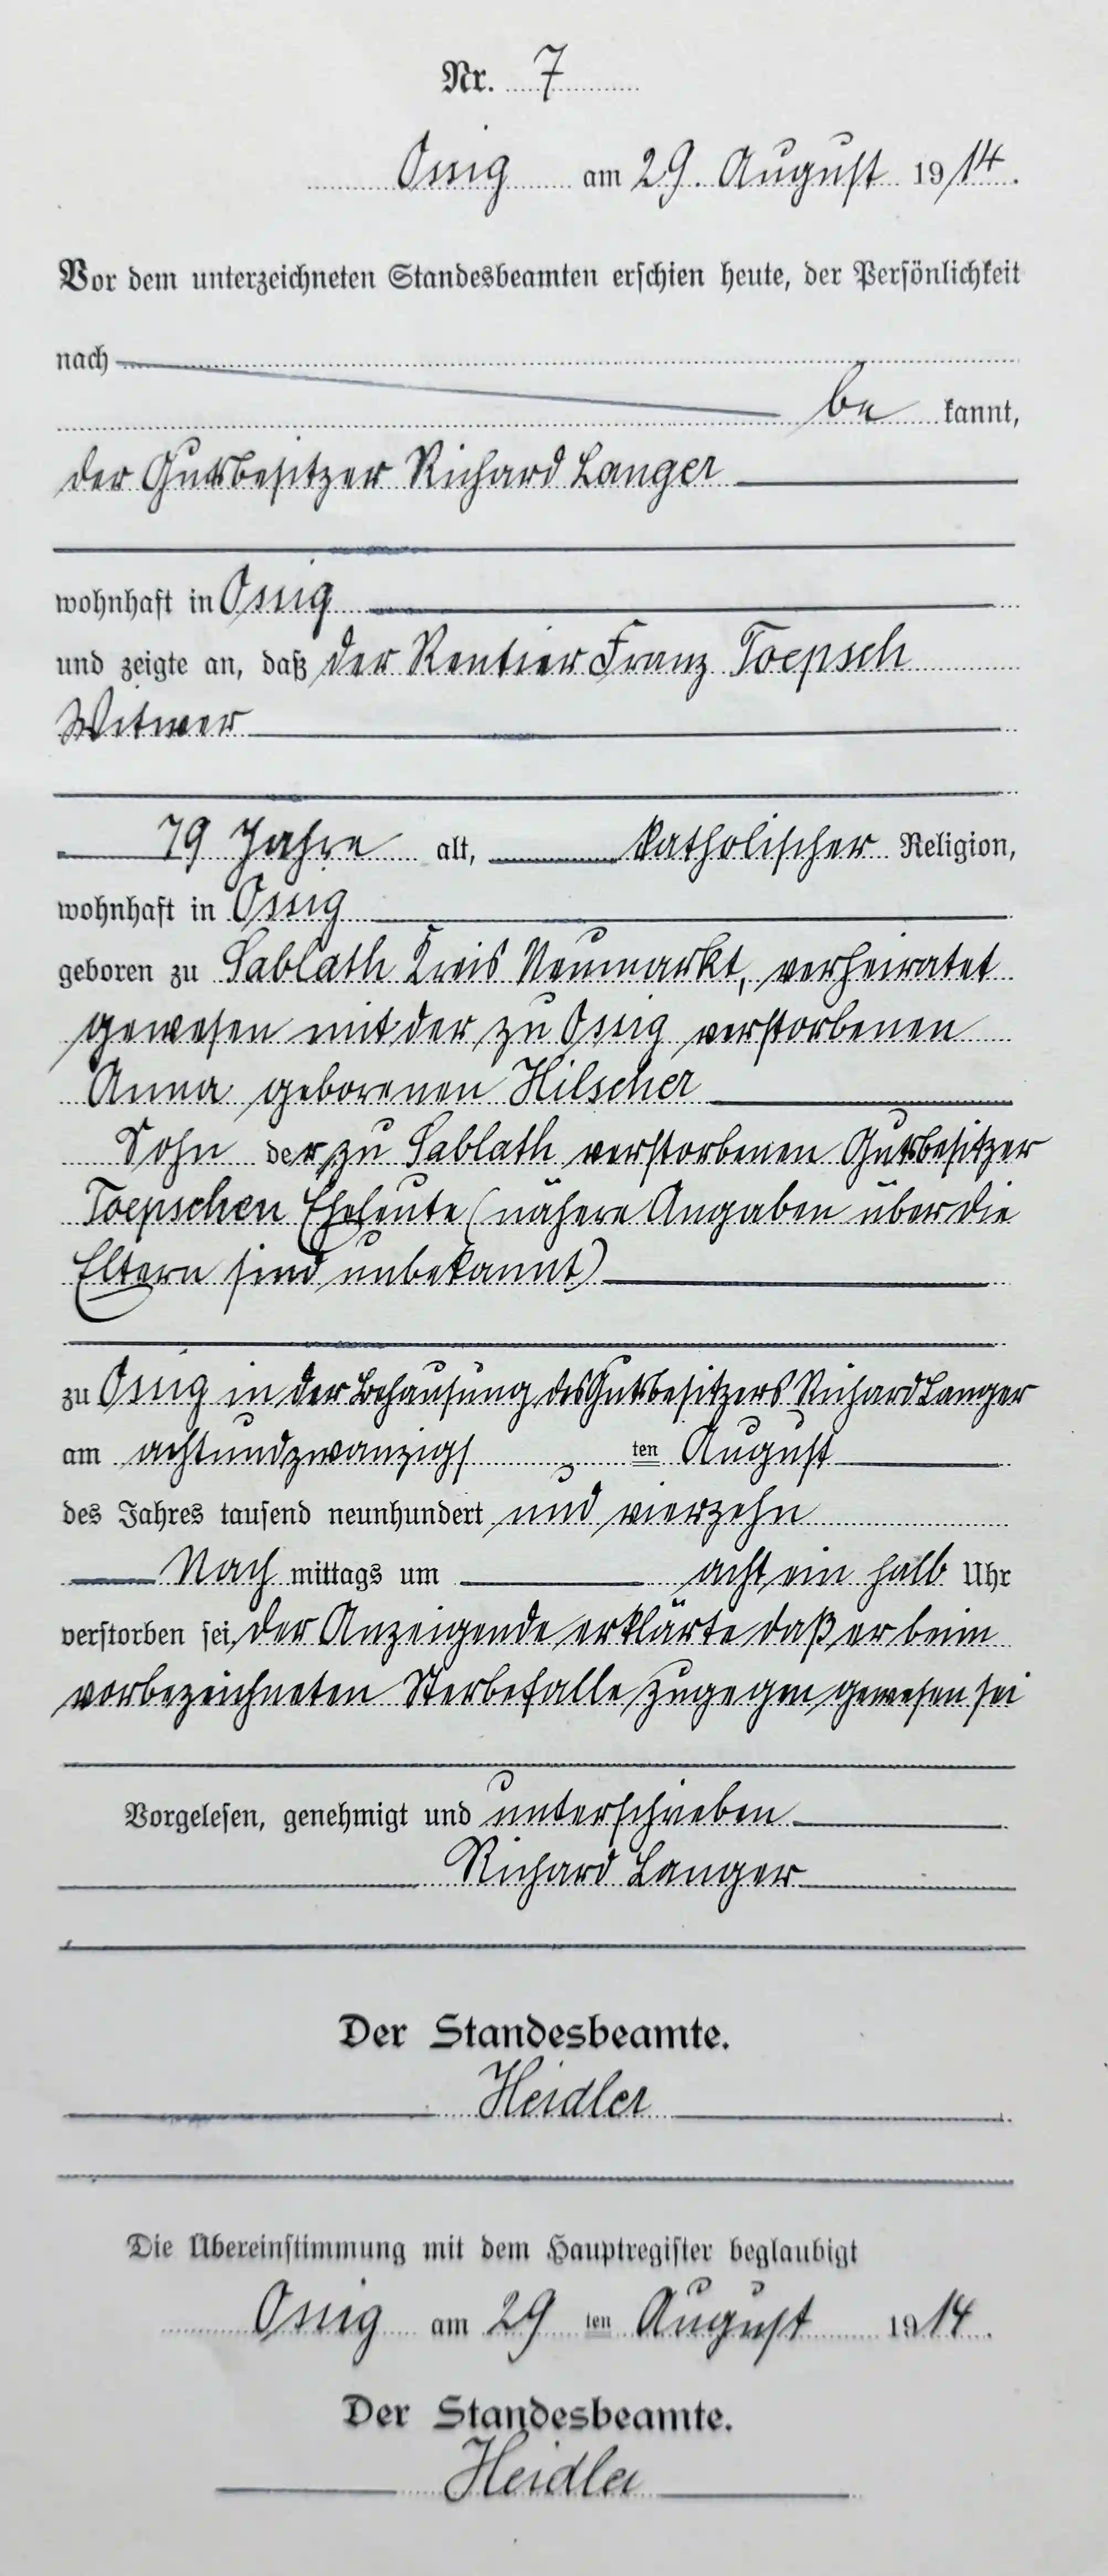 Nr. 7
Ossig am 29. August 1914.
Vor dem unterzeichneten Standesbeamten erschien heute, der Persönlichkeit
nach
be kannt,
der Gutsbesitzer Richard Langer
wohnhaft in Ossig
und zeigte an, daß der Rentier Franz Toepsch
Witwer
79 Jahre alt, katholischer Religion,
wohnhaft in Ossig
geboren zu Sablath Kreis Neumarkt, verheiratet
gewesen mit der zu Ossig verstorbenen
Anna geborenen Hilscher
Sohn der zu Sablath verstorbenen Gutsbesitzer
Toepschen Eheleute (nähere Angaben über die
Eltern sind unbekannt)
zu Ossig in der Behausung des Gutsbesitzers Richard Langer
am achtundzwanzigs ten August
des Jahres tausend neunhundert und vierzehn
Nach mittags um acht ein halb Uhr
verstorben sei, der Anzeigende erklärte daß er beim
vorbezeichneten Sterbefalle zugegen gewesen sei
Vorgelesen, genehmigt und unterschrieben
Richard Langer
Der Standesbeamte.
Heidler
Die Übereinstimmung mit dem Hauptregister beglaubigt
Ossig am 29 ten August 1914.
Der Standesbeamte.
Heidler